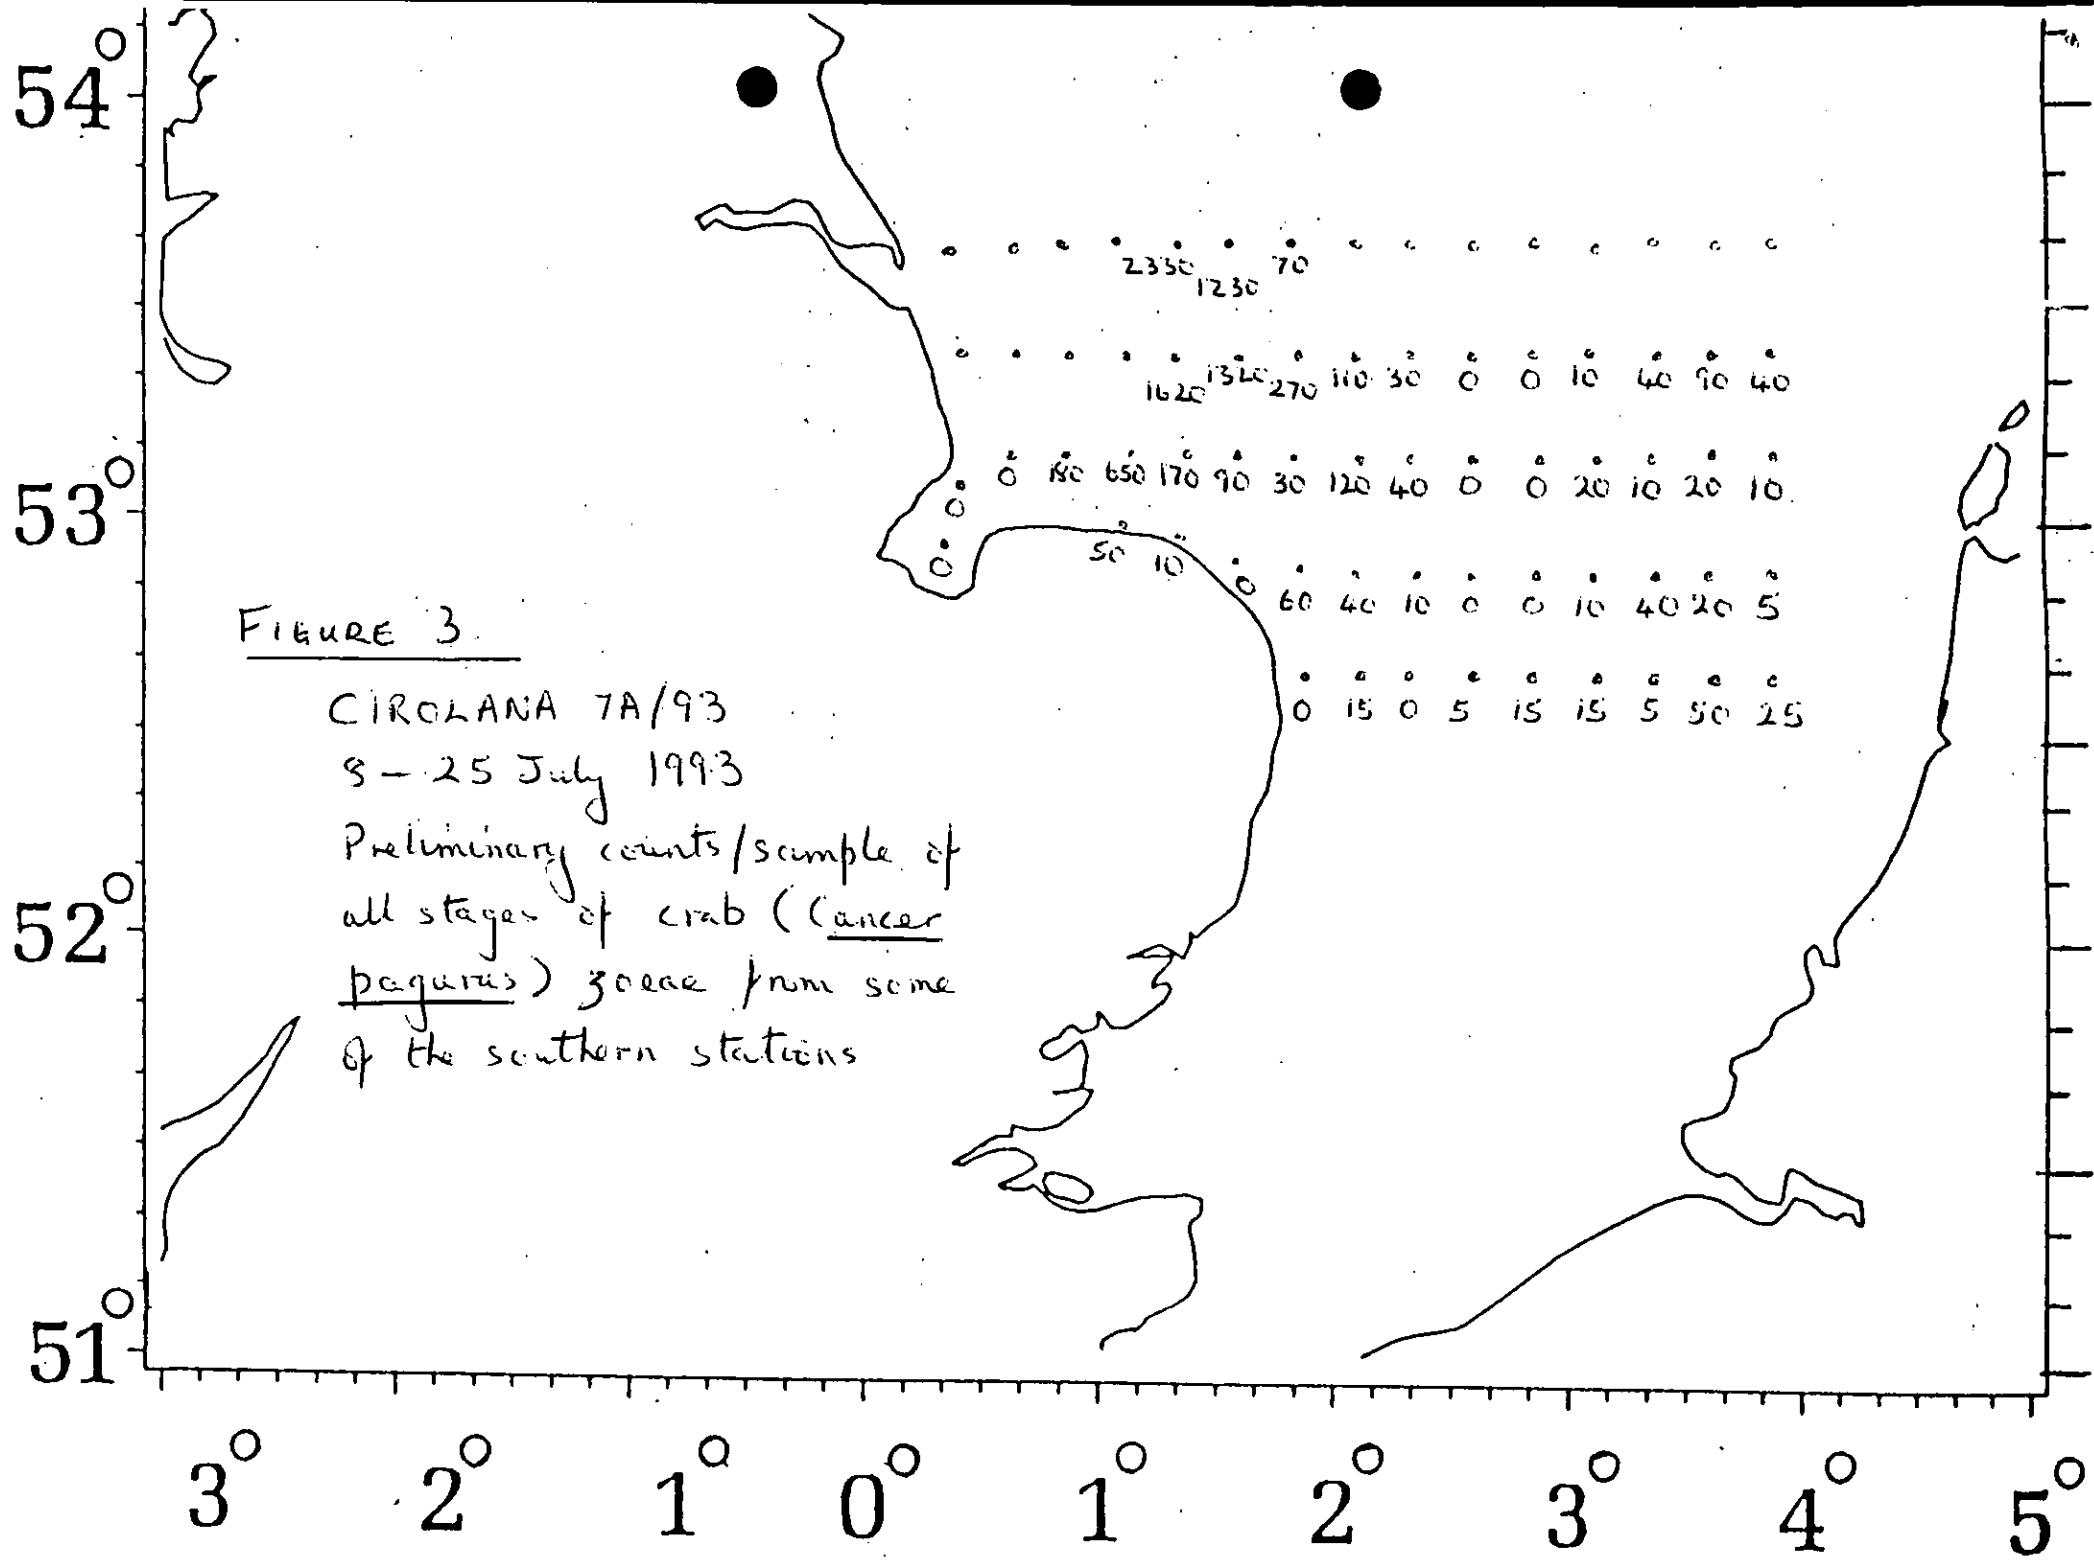 54°
2330 1230 70
1620 1320 270 110 30 0 0 10 40 90 40
0 180 650 170 90 30 120 40 0 0 20 10 20 10
53°
0
50 10
0 0
60 40 10 0 0 10 40 20 5
FIGURE 3
0 15 0 5 15 15 5 50 25
CIROLANA 7A/93
8 - 25 July 1993
Preliminary counts/sample of
all stages of crab (Cancer
52°
pagurus) zoeae from some
of the southern stations
51°
3° 2° 1° 0° 1° 2° 3° 4° 5°